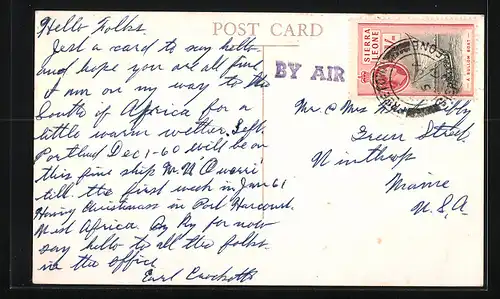 POST CARD
Hello Folks.
Just a card to say hello
and hope you are all fine
I am on my way to the
South of Africa for a
little warm wether. Left
Portland Dec 1-60 will be on
this fine ship M.V.
till the first week in Jan 61
Having Christmass in Port Harcourt
West Africa. By By for now
say hello to all the folks
in the office
Earl Crockett
BY AIR
SIERRA
LEONE
A BULLOM BOAT
Mr & Mrs Libby
Green Street
Winthrop
Maine
U.S.A